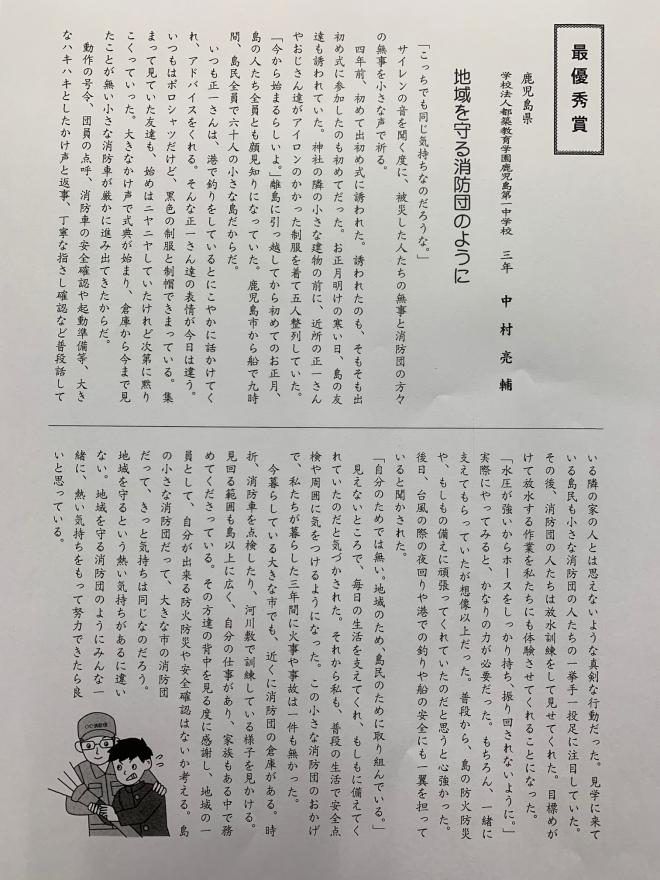 最優秀賞
鹿児島県
学校法人都築教育学園鹿児島第一中学校　三年　中村亮輔
地域を守る消防団のように
「こっちでも同じ気持ちなのだろうな。」
サイレンの音を聞く度に、被災した人たちの無事と消防団の方々
の無事を小さな声で祈る。
四年前、初めて出初め式に誘われた。誘われたのも、そもそも出
初め式に参加したのも初めてだった。お正月明けの寒い日、島の友
達も誘われていた。神社の隣の小さな建物の前に、近所の正一さん
やおじさん達がアイロンのかかった制服を着て五人整列していた。
「今から始まるらしいよ。」離島に引っ越してから初めてのお正月、
島の人たち全員とも顔見知りになっていた。鹿児島市から船で九時
間、島民全員で六十人の小さな島だからだ。
いつも正一さんは、港で釣りをしているとにこやかに話かけてく
れ、アドバイスをくれる。そんな正一さん達の表情が今日は違う。
いつもはポロシャツだけど、黒色の制服と制帽できまっている。集
まって見ていた友達も、始めはニヤニヤしていたけれど次第に黙り
こくっていった。大きなかけ声で式典が始まり、倉庫から今まで見
たことが無い小さな消防車が厳かに進み出てきたからだ。
動作の号令、団員の点呼、消防車の安全確認や起動準備等、大き
なハキハキとしたかけ声と返事、丁寧な指さし確認など普段話して
いる隣の家の人とは思えないような真剣な行動だった。見学に来て
いる島民も小さな消防団の人たちの一挙手一投足に注目していた。
その後、消防団の人たちは放水訓練をして見せてくれた。目標めが
けて放水する作業を私たちにも体験させてくれることになった。
「水圧が強いからホースをしっかり持ち、振り回されないように。」
実際にやってみると、かなりの力が必要だった。もちろん、一緒に
支えてもらっていたが想像以上だった。普段から、島の防火防災
や、もしもの備えに頑張ってくれていたのだと思うと心強かった。
後日、台風の際の夜回りや港での釣りや船の安全にも一翼を担って
いると聞かされた。
「自分のためでは無い。地域のため、島民のために取り組んでいる。」
見えないところで、毎日の生活を支えてくれ、もしもに備えてく
れていたのだと気づかされた。それから私も、普段の生活で安全点
検や周囲に気をつけるようになった。この小さな消防団のおかげ
で、私たちが暮らした三年間に火事や事故は一件も無かった。
今暮らしている大きな市でも、近くに消防団の倉庫がある。時
折、消防車を点検したり、河川敷で訓練している様子を見かける。
見回る範囲も島以上に広く、自分の仕事があり、家族もある中で務
めてくださっている。その方達の背中を見る度に感謝し、地域の一
員として、自分が出来る防火防災や安全確認はないか考える。島
の小さな消防団だって、大きな市の消防団
だって、きっと気持ちは同じなのだろう。
地域を守るという熱い気持ちがあるに違い
ない。地域を守る消防団のようにみんな一
緒に、熱い気持ちをもって努力できたら良
いと思っている。